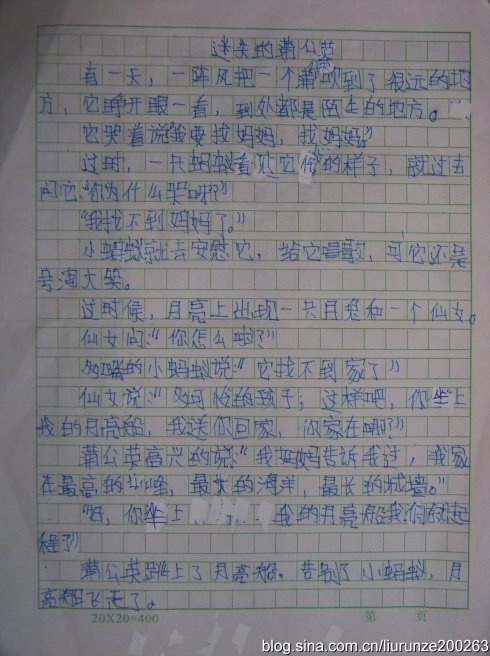 迷失的蒲公英
有一天，一阵风把一个蒲吹到了很远的地
方，它睁开眼一看，到处都是陌生的地方。
它哭着说我要找妈妈，找妈妈。”
过时，一只蚂蚁看见它伤的样子，就过去
问它：“你为什么哭呀？”
“我找不到妈妈了。”
小蚂蚁就去安慰它，给它唱歌，可它还是
号淘大哭。
过时候，月亮上出现一只月兔和一个仙女。
仙女问：“你怎么啦？”
多嘴的小蚂蚁说：“它找不到家了”
仙女说：“多可怜的孩子；这样吧，你坐上
我的月亮船，我送你回家，你家在哪？”
蒲公英高兴的说：“我妈妈告诉我过，我家
在最高的山峰，最大的海洋，最长的城墙。”
“好，你坐上我的月亮船我们就起
程了”
蒲公英跳上了月亮船。告别了小蚂蚁，月
亮船飞走了。
20X20=400 第 页
blog.sina.com.cn/liurunze200263